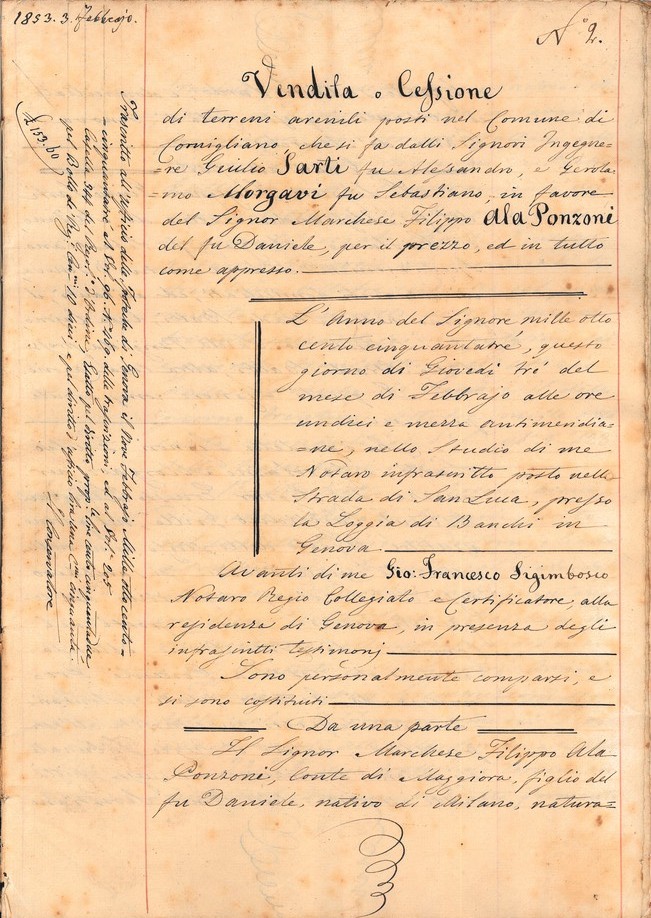 1853. 3. Febbrajo.
N° 2.
Vendita o Cessione
di terreni arenili posti nel Comune di
Cornigliano, che si fa dalli Signori Ingegne=
=re Giulio Sarti fu Alesandro, e Gerola=
=mo Morgavi fu Sebastiano, in favore
del Signor Marchese Filippo Ala Ponzoni
del fu Daniele, per il prezzo, ed in tutto
come appresso.
L'Anno del Signore mille otto
cento cinquantatré, questo
giorno di Giovedi tré del
mese di Febbrajo alle ore
undici e mezza antimeridia=
=ne, nello Studio di me
Notaro infrascritto posto nella
Strada di San Luca, presso
la Loggia di Banchi in
Genova
Avanti di me Gio: Francesco Sigimbosco
Notaro Regio Collegiato e Certificatore, alla
residenza di Genova, in presenza degli
infrascritti testimonj
Sono personalmente comparsi, e
si sono costituiti
Da una parte
Il Signor Marchese Filippo Ala
Ponzone, Conte di Maggiora, figlio del
fu Daniele, nativo di Milano, natura=
Trascritto all'ufficio delle Ipoteche di Genova il Nove Febbrajo Mille otto cento=
=cinquantatré al Vol. 96 N. 789 delle trascrizioni, ed al Vol. 205
Casella 344 del Reg. d'ordine. Esatto pel diritto prop. Lire cento cinquantadue
pel Bollo di Reg. Cen.mi 10 dieci, e pel diritto d'ufficio Lire una C.mi cinquanta.
Il Conservatore
£ 153.60